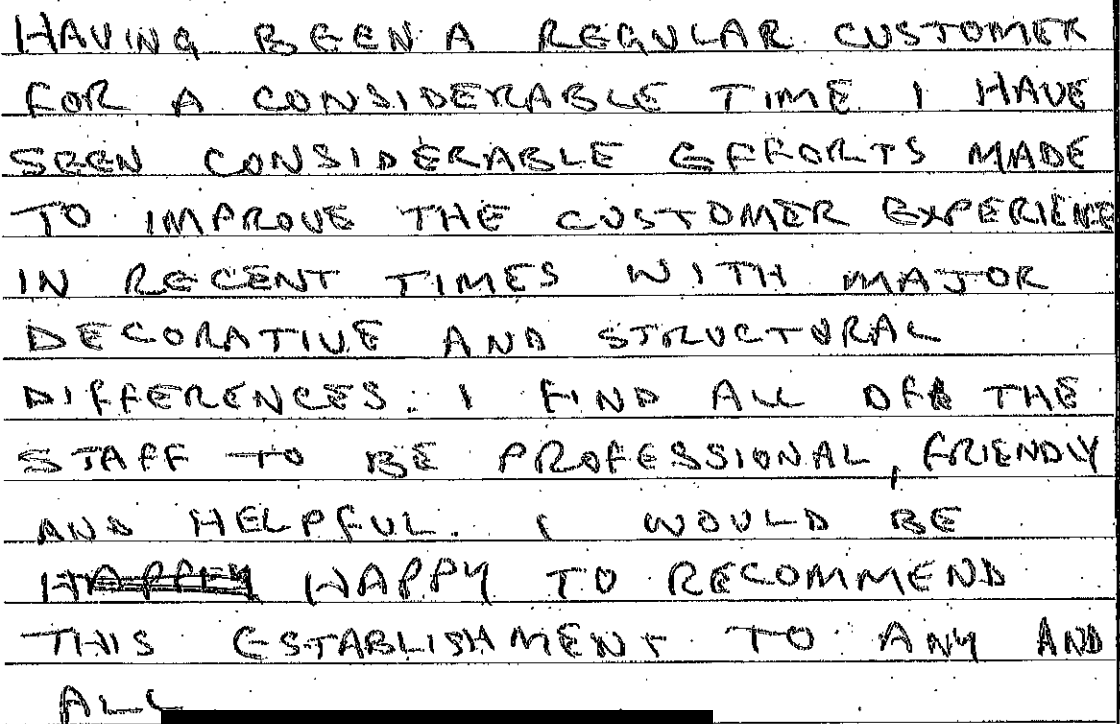 HAVING BEEN A REGULAR CUSTOMER
FOR A CONSIDERABLE TIME I HAVE
SEEN CONSIDERABLE EFFORTS MADE
TO IMPROVE THE CUSTOMER EXPERIENCE
IN RECENT TIMES WITH MAJOR
DECORATIVE AND STRUCTURAL
DIFFERENCES. I FIND ALL OF THE
STAFF TO BE PROFESSIONAL, FRIENDLY
AND HELPFUL. I WOULD BE
HAPPY TO RECOMMEND
THIS ESTABLISHMENT TO ANY AND
ALL